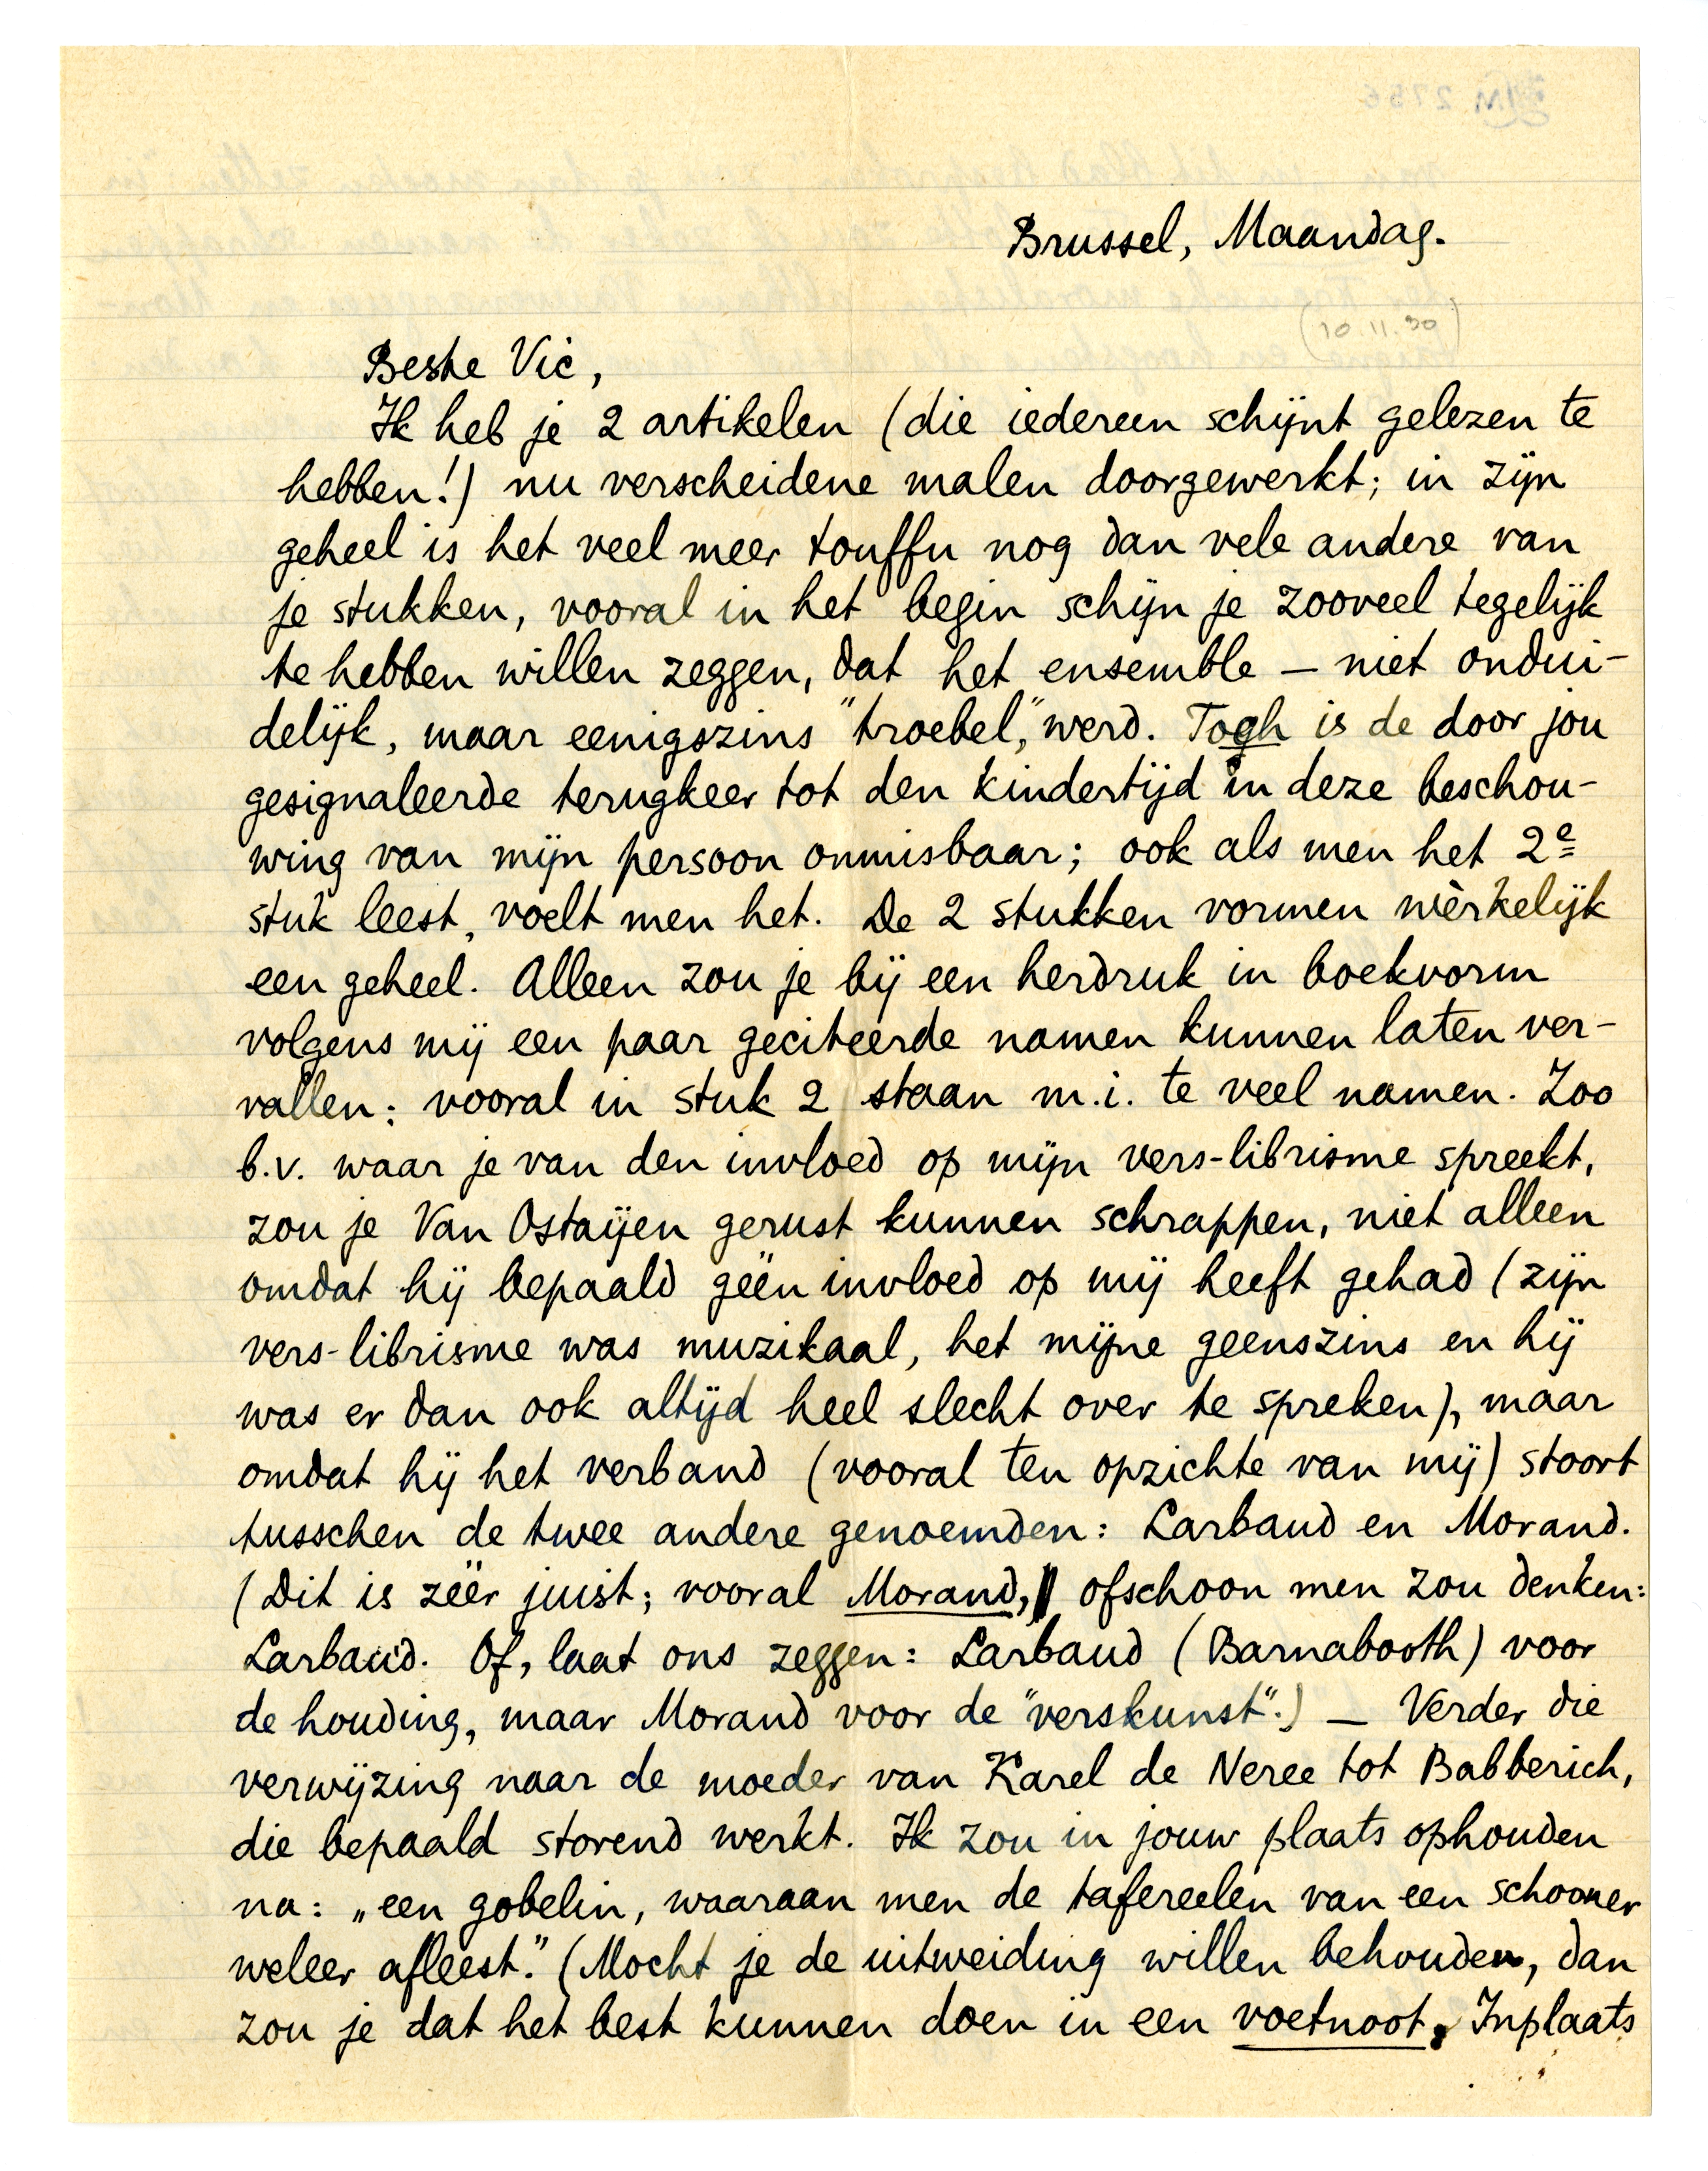 Brussel, Maandag.
(10.11.30)
Beste Vic,
Ik heb je 2 artikelen (die iedereen schijnt gelezen te
hebben!) nu verscheidene malen doorgewerkt; in zijn
geheel is het veel meer touffu nog dan vele andere van
je stukken, vooral in het begin schijn je zooveel tegelijk
te hebben willen zeggen, dat het ensemble — niet ondui-
delijk, maar eenigszins "troebel," werd. Togh is de door jou
gesignaleerde terugkeer tot den kindertijd in deze beschou-
wing van mijn persoon onmisbaar; ook als men het 2e
stuk leest, voelt men het. De 2 stukken vormen wèrkelijk
een geheel. Alleen zou je bij een herdruk in boekvorm
volgens mij een paar geciteerde namen kunnen laten ver-
vallen: vooral in stuk 2 staan m.i. te veel namen. Zoo
b.v. waar je van den invloed op mijn vers-librisme spreekt,
zou je Van Ostaijen gerust kunnen schrappen, niet alleen
omdat hij bepaald géén invloed op mij heeft gehad (zijn
vers-librisme was muzikaal, het mijne geenszins en hij
was er dan ook altijd heel slecht over te spreken), maar
omdat hij het verband (vooral ten opzichte van mij) stoort
tusschen de twee andere genoemden: Larbaud en Morand.
(Dit is zéér juist; vooral Morand, ofschoon men zou denken:
Larbaud. Of, laat ons zeggen: Larbaud (Barnabooth) voor
de houding, maar Morand voor de "verskunst".) — Verder die
verwijzing naar de moeder van Karel de Neree tot Babberich,
die bepaald storend werkt. Ik zou in jouw plaats ophouden
na: „een gobelin, waaraan men de tafereelen van een schooner
weleer afleest." (Mocht je de uitweiding willen behouden, dan
zou je dat het best kunnen doen in een voetnoot. Inplaats